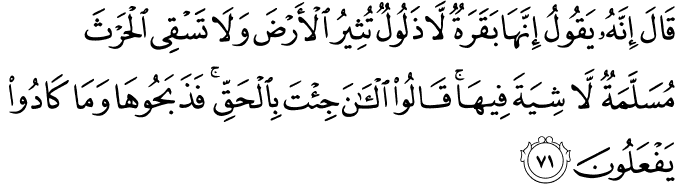 قَالَ إِنَّهُۥ يَقُولُ إِنَّهَا بَقَرَةٌ لَّا ذَلُولٌ تُثِيرُ ٱلْأَرْضَ وَلَا تَسْقِى ٱلْحَرْثَ
مُسَلَّمَةٌ لَّا شِيَةَ فِيهَا ۚ قَالُوا۟ ٱلْـَٰٔنَ جِئْتَ بِٱلْحَقِّ ۚ فَذَبَحُوهَا وَمَا كَادُوا۟
يَفْعَلُونَ ٧١